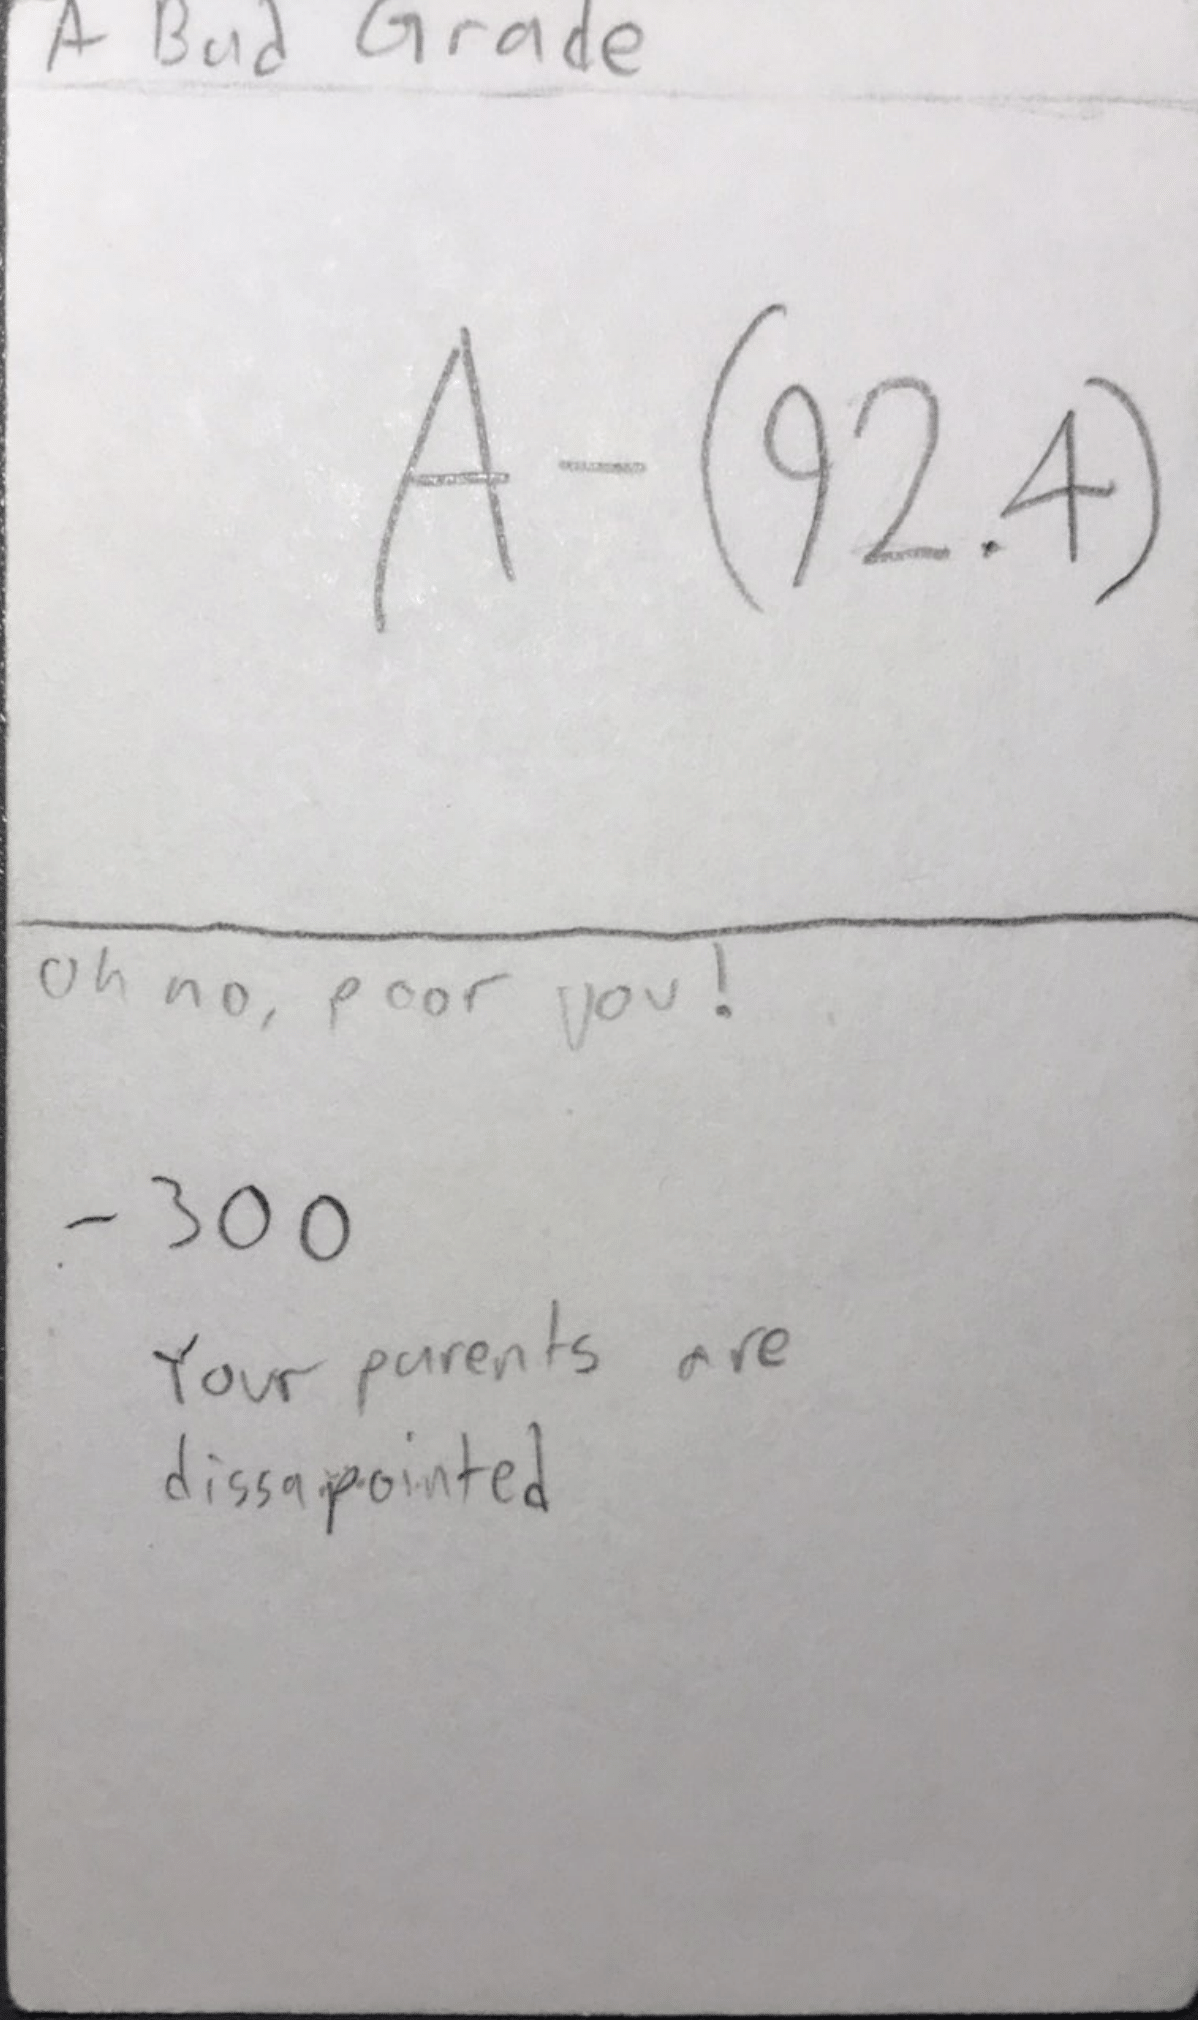 A Bad Grade
A - (92.4)
Oh no, poor you!
- 300
Your parents are
dissapointed